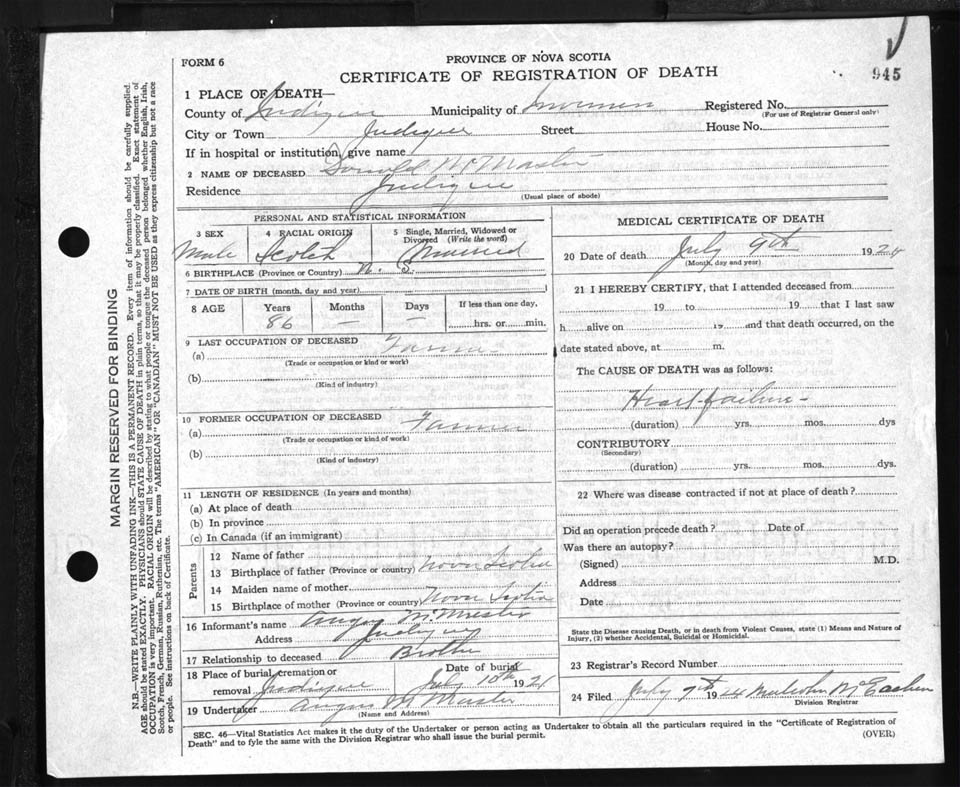 FORM 6
PROVINCE OF NOVA SCOTIA
CERTIFICATE OF REGISTRATION OF DEATH
945
1 PLACE OF DEATH—
County of Judique Municipality of Inverness Registered No.
(For use of Registrar General only)
City or Town Judique Street House No.
If in hospital or institution, give name
2 NAME OF DECEASED Donald McMaster
Residence Judique
(Usual place of abode)
PERSONAL AND STATISTICAL INFORMATION
3 SEX 4 RACIAL ORIGIN 5 Single, Married, Widowed or Divorced (Write the word)
Male Scotch Married
6 BIRTHPLACE (Province or Country) N. S.
7 DATE OF BIRTH (month, day and year)
8 AGE Years Months Days If less than one day,
86 — hrs. or min.
9 LAST OCCUPATION OF DECEASED
(a) Farmer
(Trade or occupation or kind or work)
(b)
(Kind of industry)
10 FORMER OCCUPATION OF DECEASED
(a) Farmer
(Trade or occupation or kind of work)
(b)
(Kind of industry)
11 LENGTH OF RESIDENCE (In years and months)
(a) At place of death
(b) In province
(c) In Canada (if an immigrant)
Parents
12 Name of father
13 Birthplace of father (Province or country) Nova Scotia
14 Maiden name of mother
15 Birthplace of mother (Province or country) Nova Scotia
16 Informant's name Angus McMaster
Address Judique
17 Relationship to deceased Brother
18 Place of burial, cremation or removal Judique Date of burial July 10th 192
19 Undertaker Angus McMaster
(Name and Address)
MEDICAL CERTIFICATE OF DEATH
20 Date of death July 9th 192
(Month, day and year)
21 I HEREBY CERTIFY, that I attended deceased from
19 to 19 that I last saw
h alive on 19 and that death occurred, on the
date stated above, at m.
The CAUSE OF DEATH was as follows:
Heart failure -
(duration) yrs. mos. dys
CONTRIBUTORY
(Secondary)
(duration) yrs. mos. dys.
22 Where was disease contracted if not at place of death?
Did an operation precede death? Date of
Was there an autopsy?
(Signed) M.D.
Address
Date
State the Disease causing Death, or in death from Violent Causes, state (1) Means and Nature of
Injury, (2) whether Accidental, Suicidal or Homicidal.
23 Registrar's Record Number
24 Filed July 19 Malcolm McEachen
Division Registrar
SEC. 46—Vital Statistics Act makes it the duty of the Undertaker or person acting as Undertaker to obtain all the particulars required in the "Certificate of Registration of
Death" and to fyle the same with the Division Registrar who shall issue the burial permit.
(OVER)
MARGIN RESERVED FOR BINDING
N.B.—WRITE PLAINLY WITH UNFADING INK—THIS IS A PERMANENT RECORD. Every item of information should be carefully supplied.
AGE should be stated EXACTLY. PHYSICIANS should STATE CAUSE OF DEATH in plain terms, so that it may be properly classified. Exact statement of
OCCUPATION is very important. RACIAL ORIGIN will be described by stating to what people or tongue the deceased person belonged whether English, Irish,
Scotch, French, German, Russian, Ruthenian, etc. The terms "AMERICAN" OR "CANADIAN" MUST NOT BE USED as they express citizenship but not a race
or people. See instructions on back of Certificate.